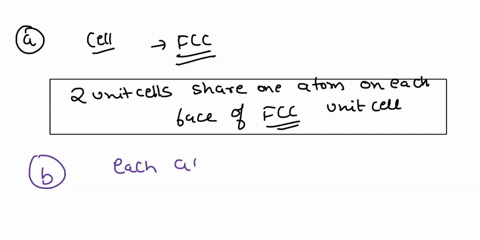 a Cell → FCC
2 unit cells share one atom on each
face of FCC unit cell
b each at